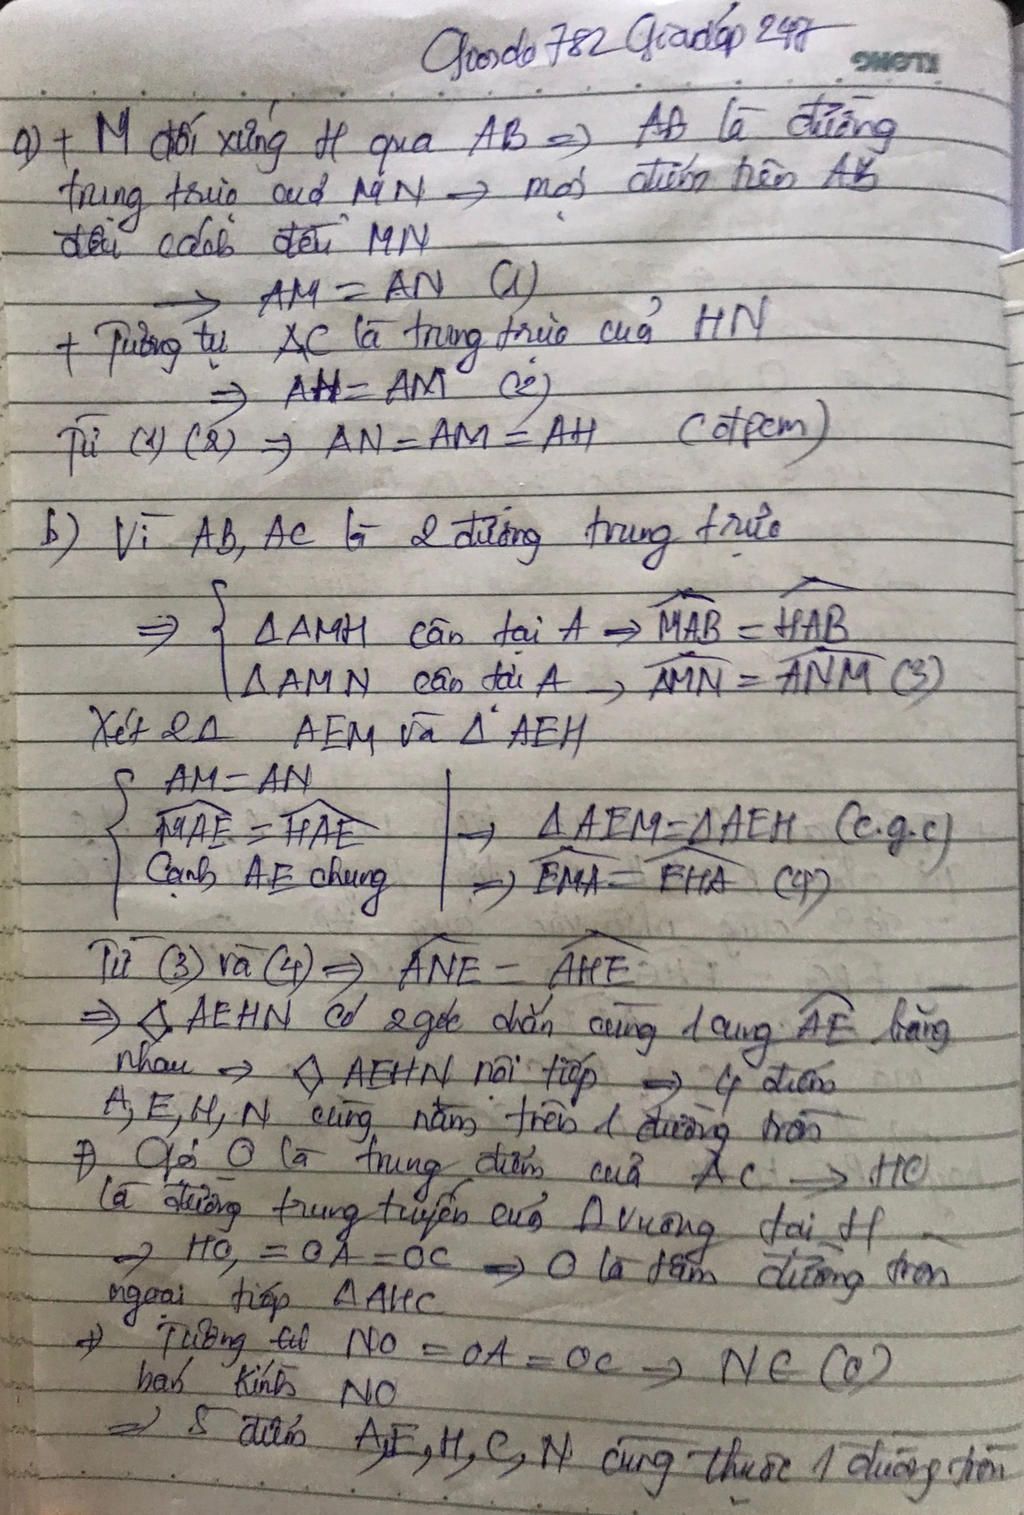 Giasdo782 Giaidap247
KLONG
a) + M đối xứng H qua AB => AB là đường
trung trực của MN → mọi điểm trên AB
đều cách đều MN
→ AM = AN (1)
+ Tương tự AC là trung trực của HN
=> AH = AM (2)
Từ (1) (2) => AN = AM = AH (đpcm)
b) Vì AB, AC là 2 đường trung trực
=> { ΔAMH cân tại A => MAB = HAB
ΔAMN cân tại A → AMN = ANM (3)
Xét 2Δ AEM và Δ AEH
{ AM = AN
MAE = HAE → ΔAEM = ΔAEH (c.g.c)
Cạnh AE chung => EMA = EHA (4)
Từ (3) và (4) => ANE = AHE
=> ◇ AEHN có 2 góc chắn cùng 1 cung AE bằng
nhau → ◇ AEHN nội tiếp → 4 điểm
A, E, H, N cùng nằm trên 1 đường tròn
+) Gọi O là trung điểm của AC → HO
là đường trung tuyến của Δ vuông tại H
→ HO = OA = OC → O là tâm đường tròn
ngoại tiếp ΔAHC
=> Tương tự NO = OA = OC → N∈(O)
bán kính NO
=> 5 điểm A, E, H, C, N cùng thuộc 1 đường tròn